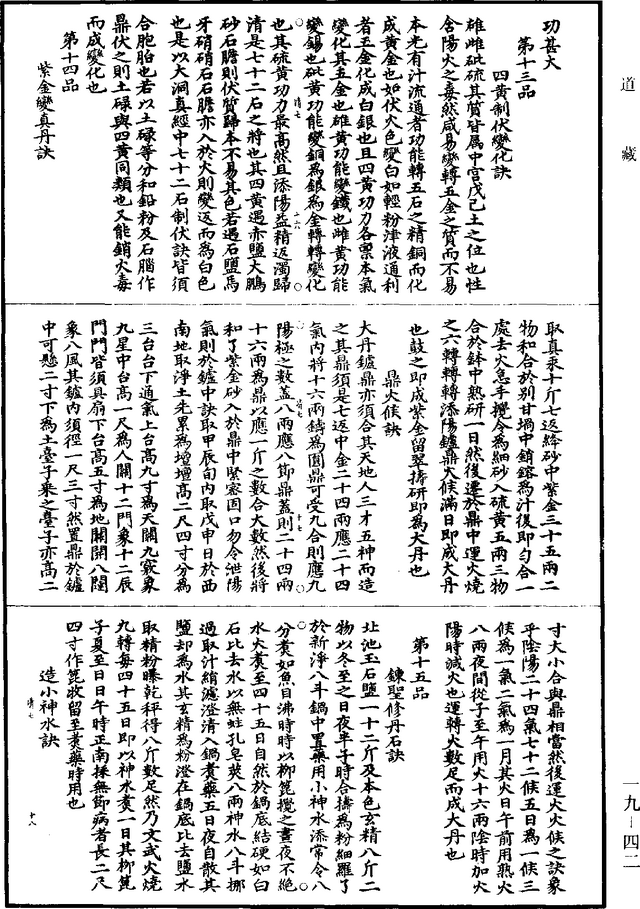 道藏
功甚大
第十三品
四黃制伏變化訣
雄雌砒硫其質皆屬中宮戊己土之位也性
含陽火之毒然咸易變轉五金之質而不易
本光有汁流通者功能轉五石之精銅而化
成黃金也如伏火色變白如輕粉津液通利
者五金化成白銀也且四黃功力各稟本氣
變化其五金也雄黃功能變鐵也雌黃功能
變錫也砒黃功能變銅為銀為金轉轉變化
也其硫黃功力最高然且添陽益精返濁歸
清是七十二石之將也其四黃遇赤鹽大鵬
砂石膽則伏質歸本不易其色若遇石鹽馬
牙硝硝石石膽亦入於火則變返而為白色
也是以大洞真經中七十二石制伏訣皆須
合胞胎也若以土碌等分和鉛粉及石腦作
鼎伏之則土碌與四黃同類也又能銷火毒
而成變化也
第十四品
紫金變真丹訣
取真汞十斤七返絳砂中紫金三十五兩二
物和合於別甘堝中銷鎔為汁後即勻合一
處去火急手攪令為細砂入硫黃五兩三物
合於鉢中熟研一日然後還於鼎中運火燒
之六轉轉轉添陽鑪鼎火候滿日即成大丹
也鼓之即成紫金留翠擣研即為大丹也
鼎火候訣
大丹鑪鼎亦須合其天地人三才五神而造
之其鼎須是七返中金二十四兩應二十四
氣內將十六兩鑄為圓鼎可受九合則應九
陽極之數蓋八兩應八節鼎蓋則二十四兩
十六兩為鼎以應一斤之數合大數然後將
和了紫金砂入於鼎中緊密固口勿令泄陽
氣則於鑪中訣取甲辰旬內取戊申日於西
南地取淨土先累為壇壇高二尺四寸分為
三台台下通氣上台高九寸為天關九竅象
九星中台高一尺為人關十二門象十二辰
門門皆須具扇下台高五寸為地關開八闥
象八風其鑪內須徑一尺三寸然置鼎於鑪
中可懸二寸下為土臺子承之臺子亦高二
寸大小合與鼎相當然後運火火候之訣象
乎陰陽二十四氣七十二候五日為一候三
候為一氣二氣為一月其火日午前用熟火
八兩夜間從子至午用火十六兩陰時加火
陽時減火也運轉火數足而成大丹也
第十五品
鍊聖修丹石訣
北池玉石鹽一十二斤及本色玄精八斤二
物以冬至之日夜半子時合擣為粉細羅了
於新淨八斗鍋中置藥用小神水添常令八
分煮如魚目沸時時以柳篦攪之晝夜不絕
水火煮至四十五日自然於鍋底結硬如白
石比去水以無蛀孔皂莢八兩神水八斗挪
過取汁絹濾澄清入鍋煮藥五日夜自散其
鹽却為水其玄精為粉澄在鍋底比去鹽水
取精粉曝乾秤得八斤數足然乃文武火燒
九轉每四十五日即以神水煮一日其柳篦
子夏至日日午時正南揀無節病者長二尺
四寸作篦收留至煮藥時用也
造小神水訣
一九－四二